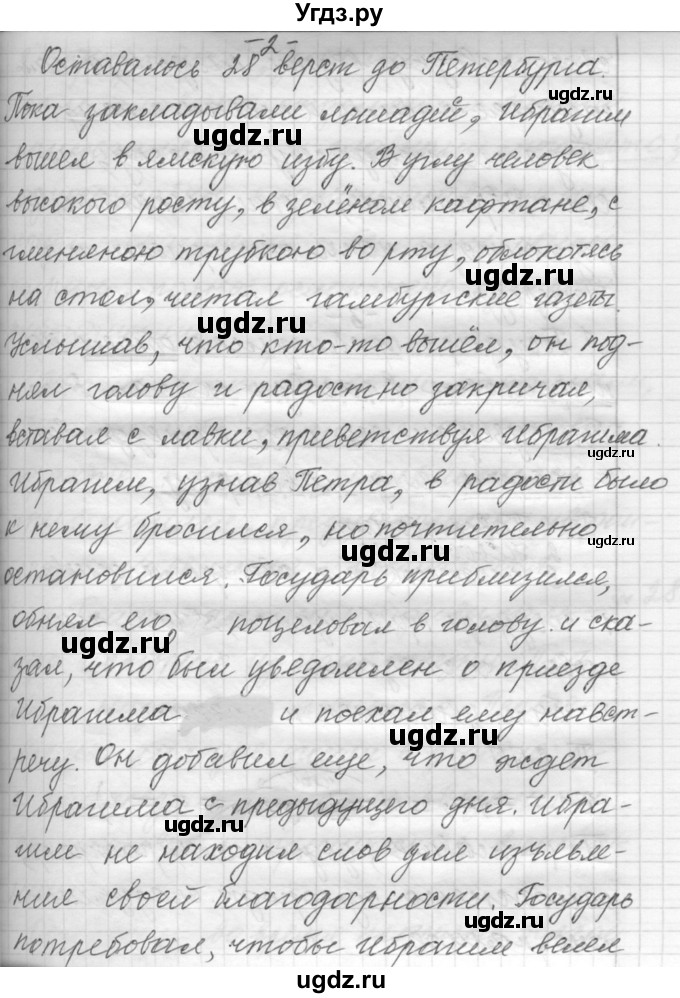 Угдз.ру
-2-
Оставалось 28 верст до Петербурга.
ugdz.ru
Пока закладывали лошадей, Ибрагим
ugdz.ru
вышел в ямскую избу. В углу человек
высокого росту, в зелёном кафтане, с
глиняною трубкою во рту, облокотясь
ugdz.ru
на стол, читал гамбургские газеты.
ugdz.ru
Услышав, что кто-то вышел, он под-
нял голову и радостно закричал,
ugdz.ru
вставал с лавки, приветствуя Ибрагима.
Ибрагим, узнав Петра, в радости было
к нему бросился, но почтительно
ugdz.ru
остановился. Государь приблизился,
обнял его, поцеловал в голову и ска-
ugdz.ru
зал, что был уведомлен о приезде
Ибрагима и поехал ему навст-
ugdz.ru
речу. Он добавил еще, что ждет
Ибрагима с предыдущего дня. Ибра-
ugdz.ru
гим не находил слов для изъявле-
ния своей благодарности. Государь
ugdz.ru
потребовал, чтобы Ибрагим велел
ugdz.ru